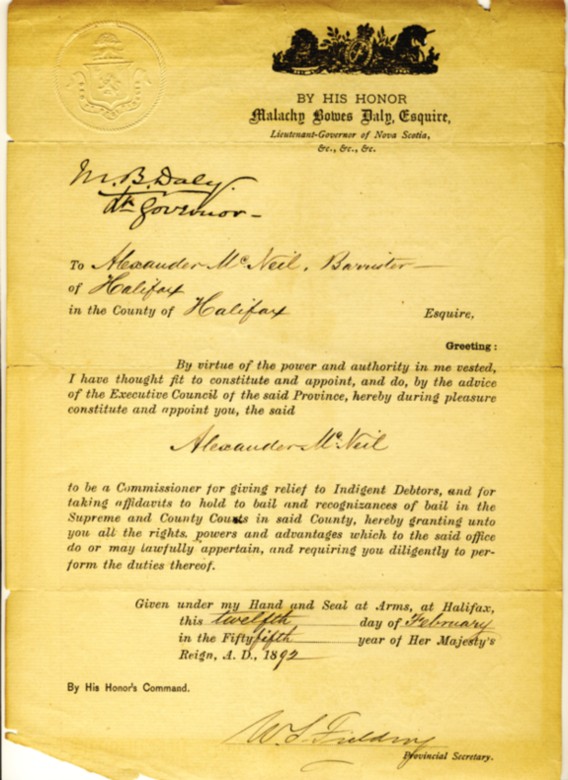 BY HIS HONOR
Malachy Bowes Daly, Esquire,
Lieutenant-Governor of Nova Scotia,
&c., &c., &c.
M. B. Daly.
Lt. Governor -
To Alexander McNeil, Barrister
of Halifax
in the County of Halifax Esquire,
Greeting:
By virtue of the power and authority in me vested,
I have thought fit to constitute and appoint, and do, by the advice
of the Executive Council of the said Province, hereby during pleasure
constitute and appoint you, the said
Alexander McNeil
to be a Commissioner for giving relief to Indigent Debtors, and for
taking affidavits to hold to bail and recognizances of bail in the
Supreme and County Courts in said County, hereby granting unto
you all the rights, powers and advantages which to the said office
do or may lawfully appertain, and requiring you diligently to per-
form the duties thereof.
Given under my Hand and Seal at Arms, at Halifax,
this twelfth day of February
in the Fifty fifth year of Her Majesty's
Reign, A. D., 1892
By His Honor's Command.
W. S. Fielding
Provincial Secretary.